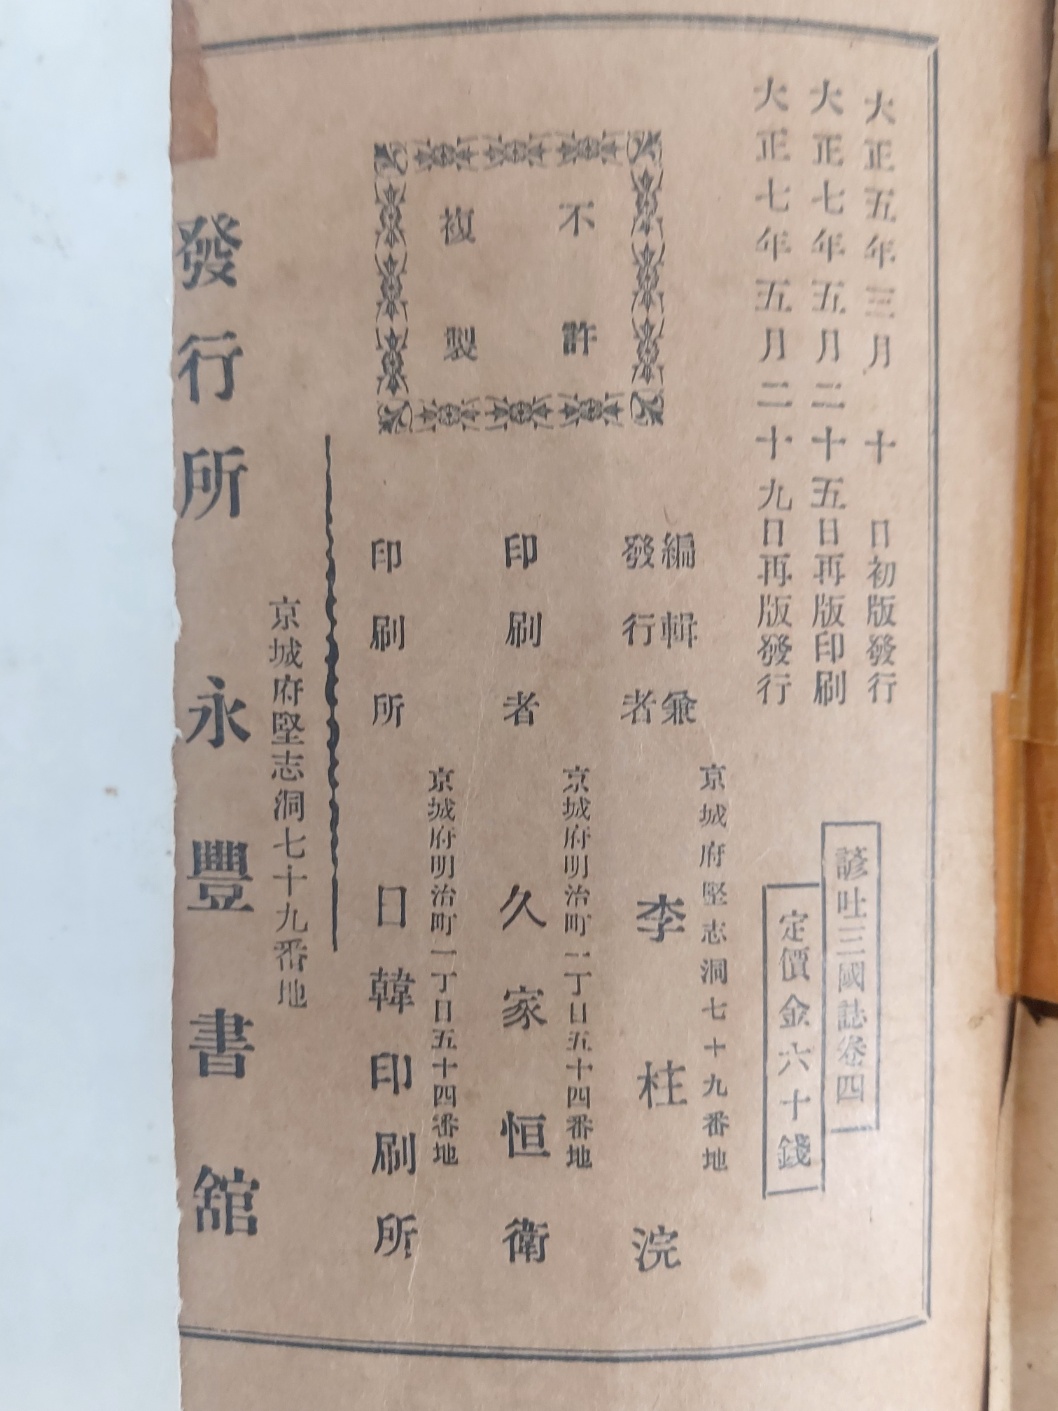 大正五年三月十日初版發行
大正七年五月二十五日再版印刷
大正七年五月二十九日再版發行
諺吐三國誌卷四
定價金六十錢
不許
複製
編輯兼
發行者
京城府堅志洞七十九番地
李柱浣
印刷者
京城府明治町一丁目五十四番地
久家恒衛
印刷所
京城府明治町一丁目五十四番地
日韓印刷所
京城府堅志洞七十九番地
發行所 永豐書舘